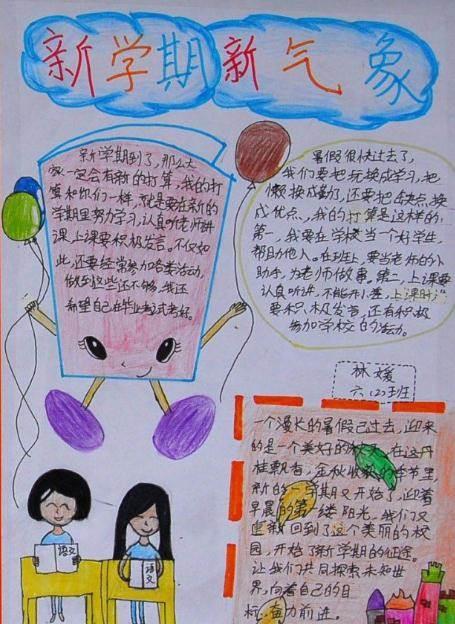 新学期新气象
新学期到了,那么大
家一定会有新的打算,我的打
算和你们一样,就是要在新的
学期里努力学习,认真听老师讲
课,上课要积极发言。不仅如
此,还要经常参加各类活动,
做到这些还不够,我还
希望自己在毕业考试考好。
暑假很快过去了,
我们要把玩换成学习,把
懒换成勤了,还要把缺点换
成优点,我的打算是这样的:
第一,我要在学校当一个好学生,
帮助他人。在班上,要当老师的小
助手,为老师做事。第二,上课要
认真听讲,不能开小差,上课时
要积极发言,还有积极
参加学校的活动。
林媛
六(2)班
一个漫长的暑假已过去,迎来
的是一个美好的秋天,在这丹
桂飘香,金秋收获的季节里,
新的一学期又开始了,迎着
早晨的第一缕阳光,我们又
重新回到了这个美丽的校
园,开始了新学期的征途。
让我们共同探索未知世
界,向着自己的目
标,奋力前进。
语文
语文